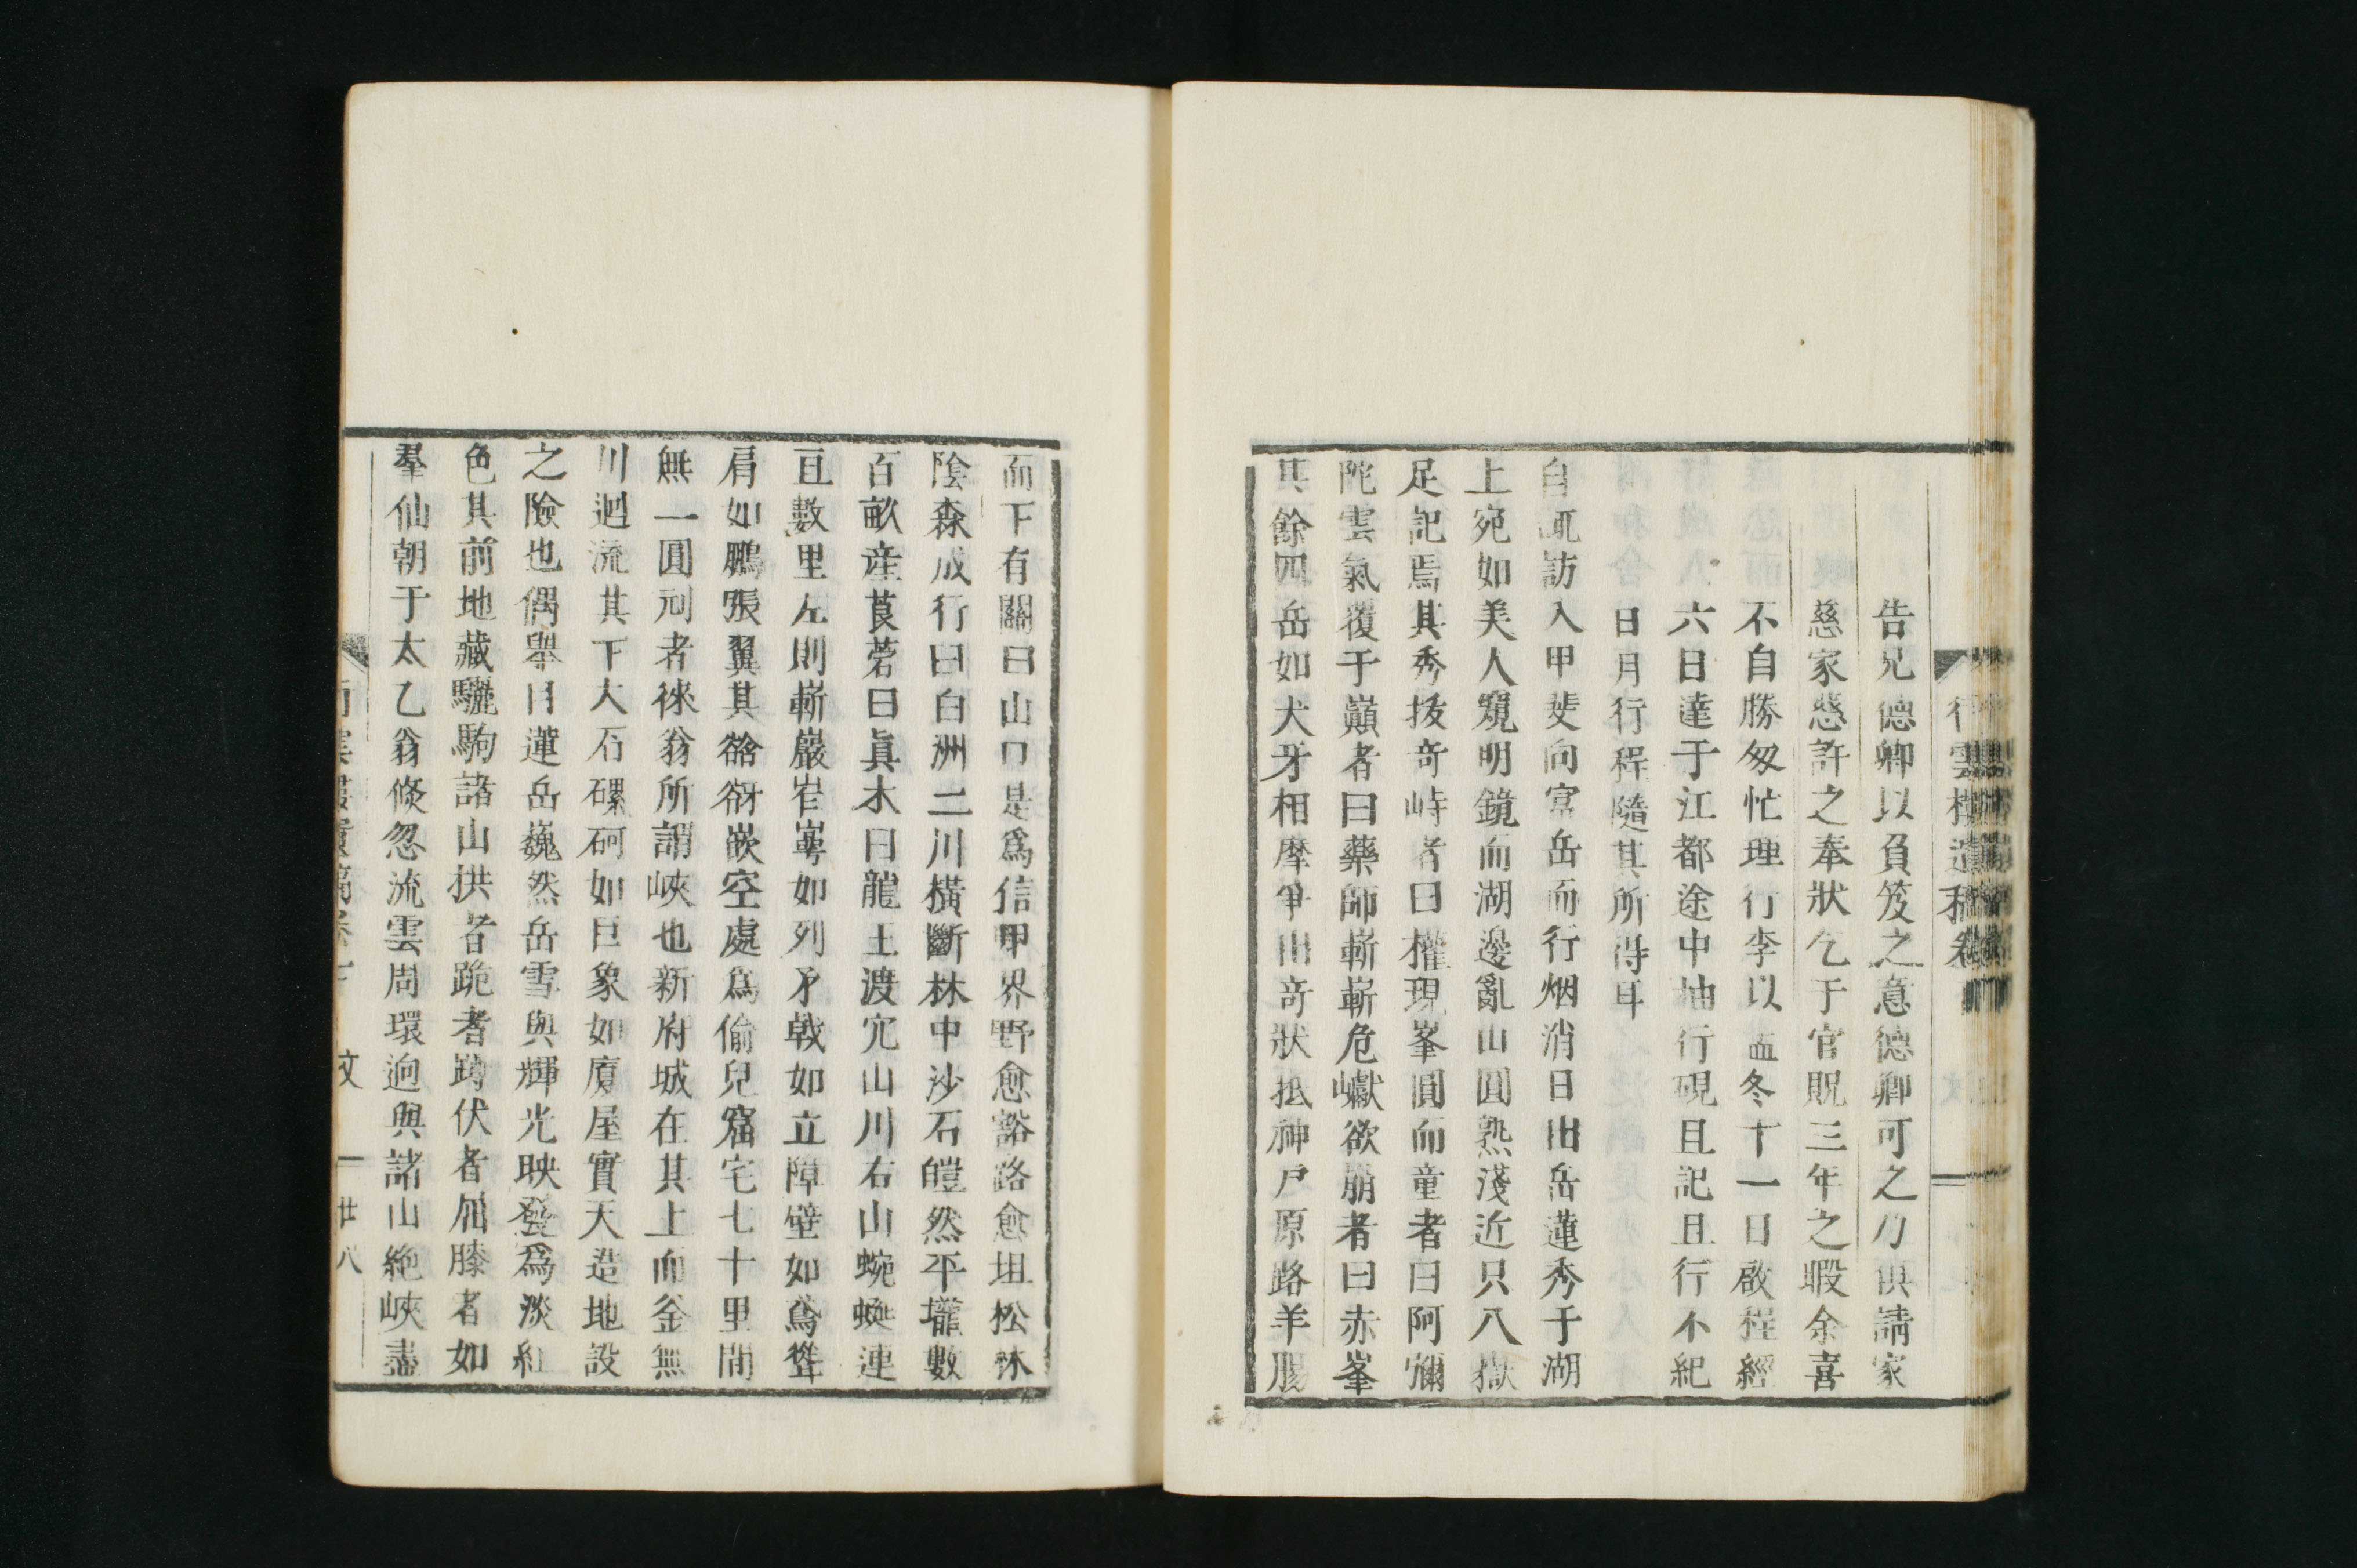 告兄德卿以負笈之意德卿可之乃俱請家
慈家慈許之奉狀乞于官賜三年之暇余喜
不自勝匆忙理行李以孟冬十一日啟程經
六日達于江都途中抽行硯且記且行不紀
日月行程隨其所得耳
自諏訪入甲斐向富岳而行烟消日出岳蓮秀于湖
上宛如美人窺明鏡而湖邊亂山圓熟淺近只八嶽
足記焉其秀拔奇峙者曰權現峯圓而童者曰阿彌
陀雲氣覆于巔者曰藥師嶄嶄危巘欲崩者曰赤峯
其餘四岳如犬牙相摩爭出奇狀抵神戶原路羊腸
而下有關曰山口是爲信甲界野愈豁路愈坦松林
陰森成行曰白洲二川橫斷林中沙石皚然平壠數
百畝産莨菪曰眞木曰龍王渡宂山川右山蜿蜒連
亘數里左則嶄巖岩崿如列矛戟如立障壁如鳶聳
肩如鵬張翼其谽谺嵌空處爲偷兒窟宅七十里間
無一圓刓者徠翁所謂峽也新府城在其上而釡無
川迴流其下大石磥砢如巨象如廈屋實天造地設
之險也偶舉目蓮岳巍然岳雪與輝光映發爲淡紅
色其前地藏驪駒諸山拱者跪者踦伏者屈膝者如
羣仙朝于太乙翁倐忽流雲周環迥與諸山絶峽盡
文 廿八